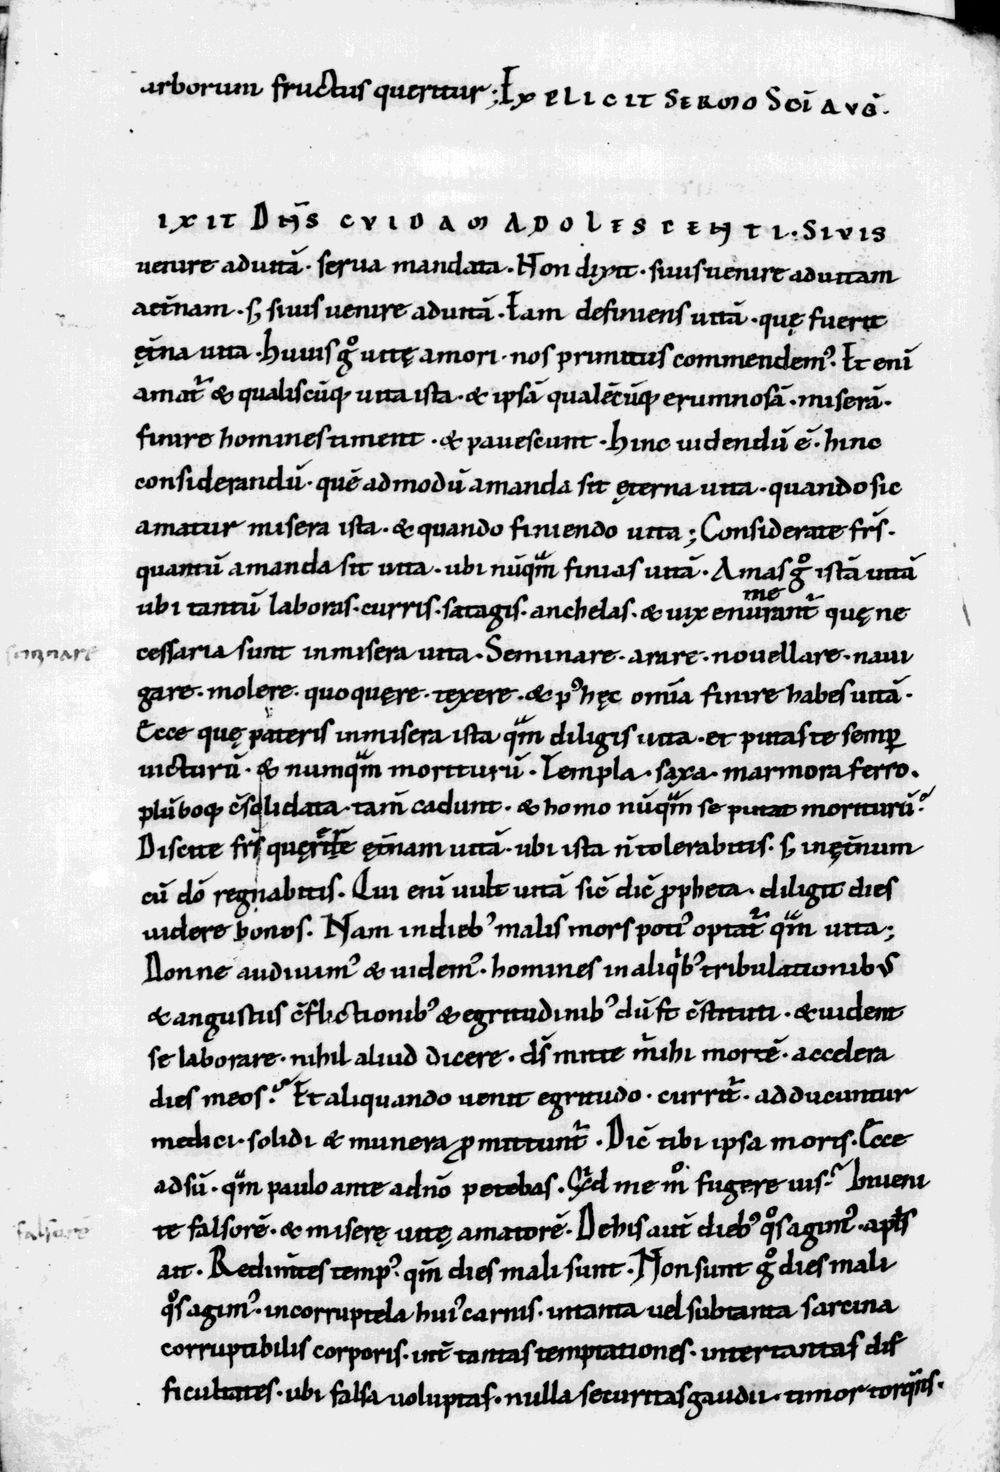 arborum fructus queritur; EXPLICIT SERMO SCĪ AVG̃.
IXIT DÑS CVIDAM ADOLESCENTI. SIVIS
uenire aduitā. serua mandata. Non dixit. siuis uenire aduitam
aet̄nam. s; siuis uenire aduitā. Iam definiens uitā. quę fuerit
ęt̄na uita. Huius gͦ uitę amori. nos primitus commendem᾽. Et enī
amat᷑ & qualiscūq; uita ista. & ipsā qualēcūq; erumnosā. miserā.
finire homines timent. & pauescunt. Hinc uidendū ē. hinc
considerandū. quē admodū amanda sit ęterna uita. quando sic
amatur misera ista. & quando finiendo uita; Considerate fr̄s.
quantū amanda sit uita. ubi nūqm̄ finias uitā. Amas gͦ istā uitā
ubi tantū laboras. curris. satagis. anchelas. & uix enumerant᷑ quę ne
seminare
cessaria sunt inmisera uita. Seminare. arare. nouellare. naui
gare. molere. quoquęre. texere. & p᾽ hęc omīa finire habes uitā.
Ecce quę pateris inmisera ista qm̄ diligis uita. et putas te semp̄
uicturū. & numqm̄ moriturū. Templa. saxa. marmora ferro.
plūboq; c̄solidata. tam̄ cadunt. & homo nūqm̄ se putat moriturū?
Discite fr̄s quęrite ęt̄nam uitā. ubi ista n̄ tolerabitis. s; inęt̄num
cū dō regnabitis. Qui enī uult uitā sic̄ dic̄ ꝓpheta. diligit dies
uidere bonos. Nam indieb᾽ malis mors poti᾽ optat᷑ qm̄ uita;
Nonne audiuim᾽ & uidem᾽. homines inaliqb᾽ tribulationibus
& angustiis c̄flictionib᾽ & egritudinib᾽ dū st̄ c̄stituti. & uident
se laborare. nihil aliud dicere. ds̄ mitte m̄ihi mortē. accelera
dies meos? Et aliquando uenit egritudo. currit᷑. adducuntur
medici. solidi & munera ꝓmittunt᷑. Dic̄ tibi ipsa moris. Ecce
adsū. qm̄ paulo ante adn̄o petebas. Qd me mͦ fugere uis? Inueni
falsorē
te falsorē. & miserę uitę amatorē. Dehis aut̄ dieb᾽ qͦs agim᾽. apls̄
ait. Redim̄tes temp᾽. qm̄ dies mali sunt. Non sunt gͦ dies mali
qͦs agim᾽. incorruptela hui᾽ carnis. intanta uel subtanta sarcina
corruptibilis corporis. int̄ tantas temptationes. inter tantas dif
ficultates. ubi falsa uoluptas. nulla securitas gaudii. timor torqns.